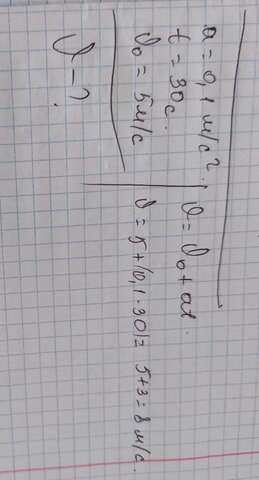 a = 0,1 м/с².
t = 30 с.
υ₀ = 5 м/с
υ - ?
υ = υ₀ + at.
υ = 5 + (0,1 · 30) = 5 + 3 = 8 м/с.